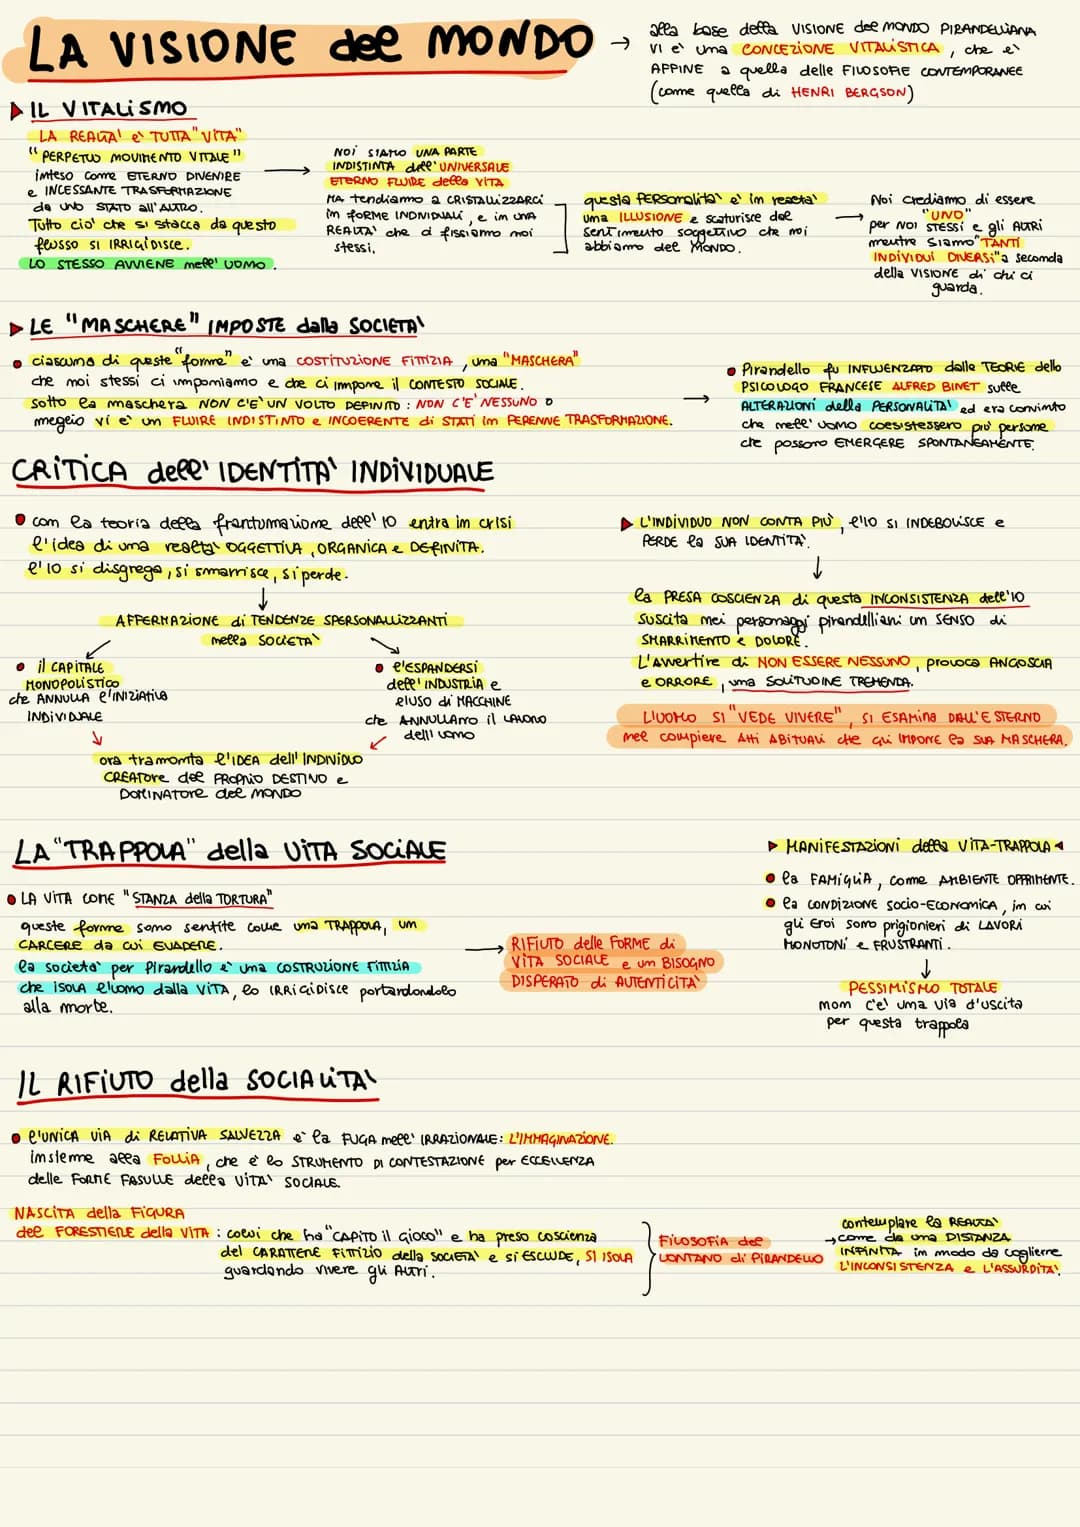 LA VISIONE del MONDO →
alla base della VISIONE del MONDO PIRANDELLIANA
VI e' una CONCEZIONE VITALISTICA, che e'
AFFINE a quella delle FILOSOFIE CONTEMPORANEE
(come quella di HENRI BERGSON)
IL VITALISMO
LA REALTA' e' TUTTA "VITA"
"PERPETUO MOVIMENTO VITALE"
inteso come ETERNO DIVENIRE
e INCESSANTE TRASFORMAZIONE
da UNO STATO all'ALTRO.
Tutto cio' che si stacca da questo
flusso SI IRRIGIDISCE.
LO STESSO AVVIENE nell'UOMO.
NOI SIAMO UNA PARTE
INDISTINTA dell'UNIVERSALE
ETERNO FLUIRE della VITA
MA tendiamo a CRISTALLIZZARCI
in FORME INDIVIDUALI, e in UNA
REALTA' che ci fissiamo noi
stessi.
questa PERSONALITA' e' in realta'
uma ILLUSIONE e scaturisce del
sentimento soggettivo che noi
abbiamo del MONDO.
Noi crediamo di essere
"UNO"
per NOI STESSI e gli ALTRI
mentre siamo "TANTI
INDIVIDUI DIVERSI" a seconda
della VISIONE di chi ci
guarda.
LE "MASCHERE" IMPOSTE dalla SOCIETA'
ciascuna di queste "forme" e' una COSTITUZIONE FITTIZIA, una "MASCHERA"
che noi stessi ci imponiamo e che ci impone il CONTESTO SOCIALE.
sotto la maschera NON C'E' UN VOLTO DEFINITO: NON C'E' NESSUNO o
meglio vi e' un FLUIRE INDISTINTO e INCOERENTE di STATI in PERENNE TRASFORMAZIONE.
Pirandello fu INFLUENZATO dalle TEORIE dello
PSICOLOGO FRANCESE ALFRED BINET sulle
ALTERAZIONI della PERSONALITA' ed era convinto
che nell'uomo coesistessero piu' persone
che possono EMERGERE SPONTANEAMENTE.
CRITICA dell'IDENTITA' INDIVIDUALE
con la teoria della frantumazione dell'IO entra in crisi
l'idea di una realta' OGGETTIVA, ORGANICA e DEFINITA.
l'IO si disgrega, si smarrisce, si perde.
AFFERMAZIONE di TENDENZE SPERSONALIZZANTI
nella SOCIETA'
il CAPITALE
MONOPOLISTICO
che ANNULLA l'INIZIATIVA
INDIVIDUALE
l'ESPANDERSI
dell'INDUSTRIA e
l'USO di MACCHINE
che ANNULLANO il LAVORO
dell'uomo
ora tramonta l'IDEA dell'INDIVIDUO
CREATORE del PROPRIO DESTINO e
DOMINATORE del MONDO
L'INDIVIDUO NON CONTA PIU', l'IO SI INDEBOLISCE e
PERDE la SUA IDENTITA'.
la PRESA COSCIENZA di questa INCONSISTENZA dell'IO
suscita nei personaggi pirandelliani un SENSO di
SMARRIMENTO e DOLORE.
L'avvertire di NON ESSERE NESSUNO, provoca ANGOSCIA
e ORRORE, una SOLITUDINE TREMENDA.
L'UOMO SI "VEDE VIVERE", SI ESAMINA DALL'ESTERNO
nel compiere Atti ABITUALI che gli IMPONE la SUA MASCHERA.
LA "TRAPPOLA" della VITA SOCIALE
LA VITA COME "STANZA della TORTURA"
queste forme sono sentite come una TRAPPOLA, un
CARCERE da cui EVADERE.
la societa' per Pirandello e' una COSTRUZIONE FITTIZIA
che ISOLA l'uomo dalla VITA, lo IRRIGIDISCE portandolo
alla morte.
RIFIUTO delle FORME di
VITA SOCIALE e un BISOGNO
DISPERATO di AUTENTICITA'
MANIFESTAZIONI della VITA-TRAPPOLA
la FAMIGLIA, come AMBIENTE OPPRIMENTE.
la CONDIZIONE SOCIO-ECONOMICA, in cui
gli Eroi sono prigionieri di LAVORI
MONOTONI e FRUSTRANTI.
PESSIMISMO TOTALE
non c'e' una via d'uscita
per questa trappola
IL RIFIUTO della SOCIALITA'
l'UNICA VIA di RELATIVA SALVEZZA e' la FUGA nell'IRRAZIONALE: L'IMMAGINAZIONE.
insieme alla FOLLIA, che è lo STRUMENTO DI CONTESTAZIONE per ECCELLENZA
delle FORME FASULLE della VITA' SOCIALE.
NASCITA della FIGURA
del FORESTIERE della VITA: colui che ha "CAPITO il GIOCO" e ha preso coscienza
del CARATTERE FITTIZIO della SOCIETA' e si ESCLUDE, SI ISOLA
guardando vivere gli Altri.
FILOSOFIA del
LONTANO di PIRANDELLO
contemplare la REALTA'
→ come da una DISTANZA
INFINITA in modo da coglierne
L'INCONSISTENZA e L'ASSURDITA'.